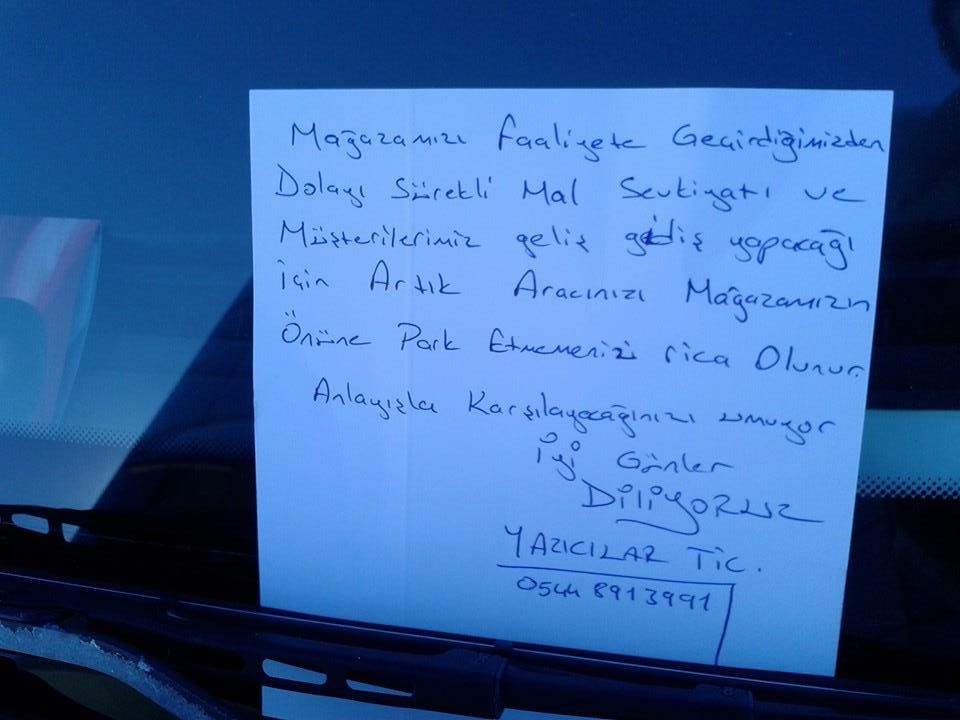 Mağazamızı faaliyete Geçirdiğimizden
Dolayı Sürekli Mal Sevkiyatı ve
Müşterilerimiz geliş gidiş yapacağı
için Artık Aracınızı Mağazamızın
Önüne Park Etmemenizi rica Olunur.
Anlayışla Karşılayacağınızı umuyor
İyi Günler
DiliyORUZ
YAZICILAR TiC.
0544 8913991